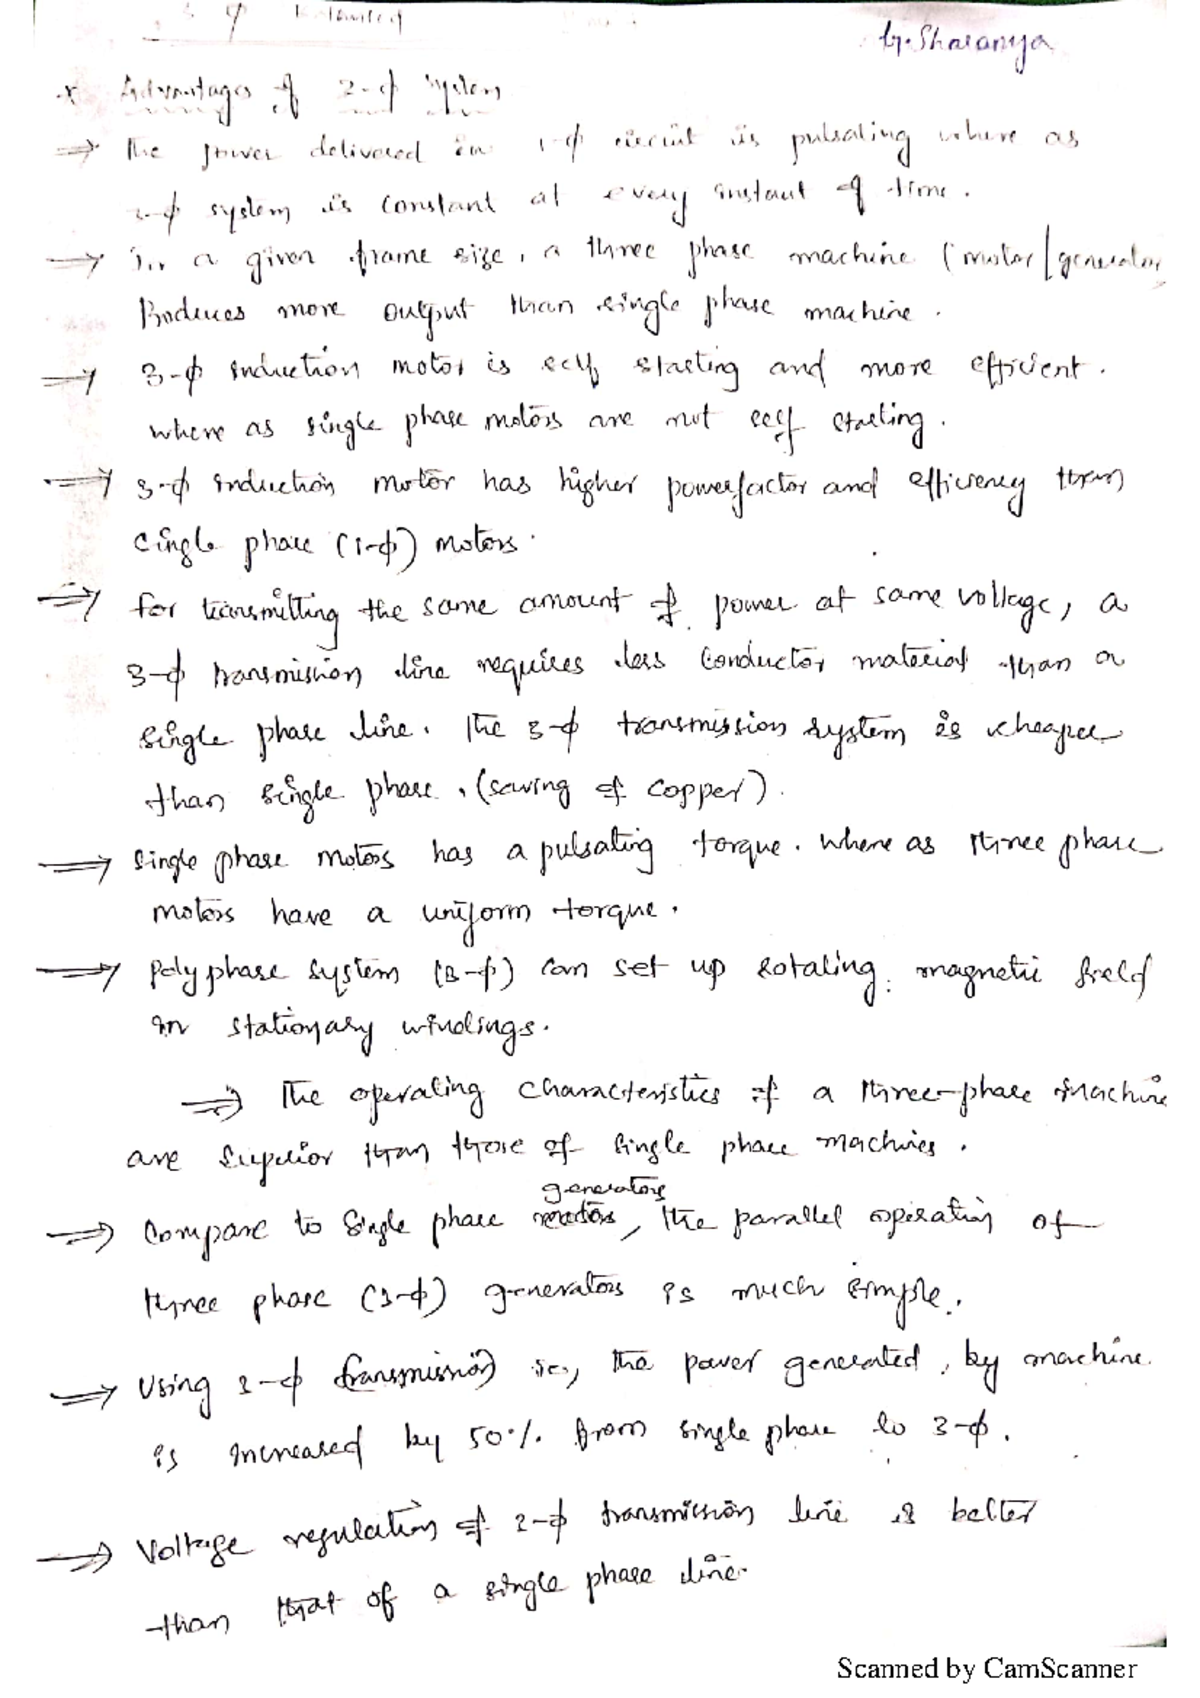 3 φ
G. Sharanya
* Advantages of 3-φ System
⇒ The power delivered in 1-φ circuit is pulsating where as
3-φ system is constant at every instant of time.
⇒ In a given frame size, a three phase machine (motor/generator
Produces more output than single phase machine.
⇒ 3-φ induction motor is self starting and more efficient.
where as single phase motors are not self starting.
⇒ 3-φ induction motor has higher powerfactor and efficiency than
single phase (1-φ) motors.
⇒ for transmitting the same amount of power at same voltage, a
3-φ transmission line requires less conductor material than a
single phase line. The 3-φ transmission system is cheaper
than single phase. (saving of copper).
⇒ single phase motors has a pulsating torque. where as three phase
motors have a uniform torque.
⇒ polyphase system (3-φ) can set up rotating magnetic field
in stationary windings.
⇒ The operating characteristics of a three-phase machine
are superior than those of single phase machines.
generators
⇒ Compare to single phase motors, the parallel operation of
three phase (3-φ) generators is much simple.
⇒ Using 3-φ transmission ie, the power generated, by machine
is increased by 50% from single phase to 3-φ.
⇒ Voltage regulation of 3-φ transmission line is better
than that of a single phase line.
Scanned by CamScanner